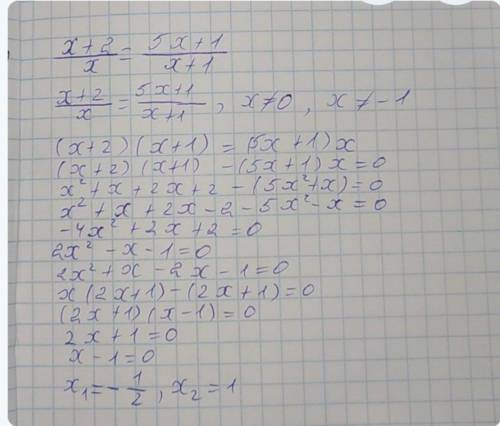 (x+2)/x = (5x+1)/(x+1)
(x+2)/x = (5x+1)/(x+1), x≠0, x≠-1
(x+2)(x+1) = (5x+1)x
(x+2)(x+1) -(5x+1)x=0
x²+x+2x+2-(5x²+x)=0
x²+x+2x-2-5x²-x=0
-4x²+2x+2=0
2x²-x-1=0
2x²+x-2x-1=0
x(2x+1)-(2x+1)=0
(2x+1)(x-1)=0
2x+1=0
x-1=0
x₁=-1/2, x₂=1